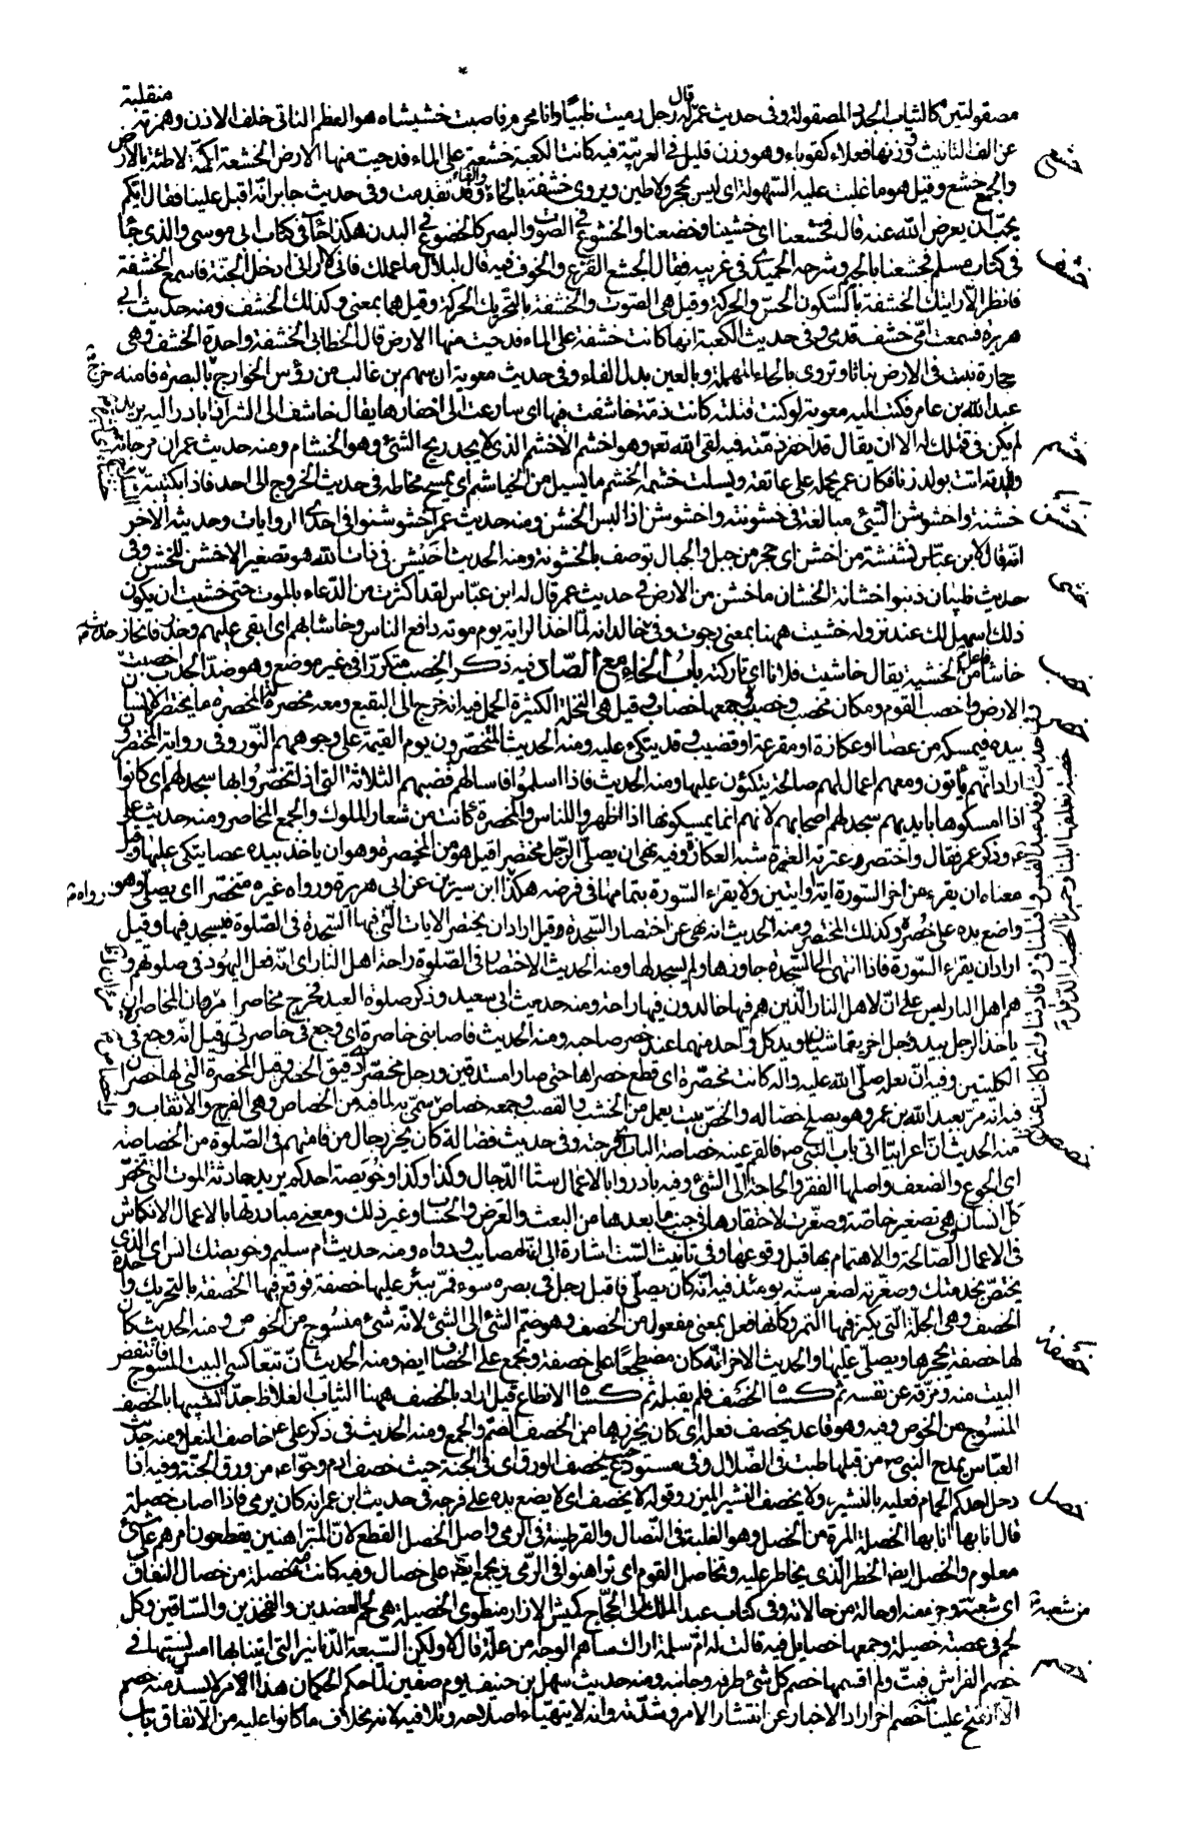 مصقولتين كالثياب الجدد المصقولة وفى حديث عمر قال له رجل رميت ظبيًا وانا محرم فاصبت خششاه هو العظم الناتى خلف الاذن وهمزته منقلبة
عن الف التانيث ووزنها فعلاء كقوباء وهو وزن قليل فى العربيّة فيه كانت الكعبة خشعة على الماء فدحيت منها الارض الخشعة اكمة لاطئة بالارض
والجمع خشع وقيل هو ما غلبت عليه السّهولة اى ليس بحجر ولا طين ويروى خشفة بالخاء والفاء وقد تقدمت وفى حديث جابر انّه اقبل علينا فقال ايّكم
يحبّ ان يعرض الله عنه قال فخشعنا اى خشينا وخضعنا والخشوع فى الصّوت والبصر كالخضوع فى البدن هكذا جاء فى كتاب ابى موسى والذى جاء
فى كتاب مسلم فجشعنا بالجيم وشرحه الحميدى فى غريبه فقال الجشع الفزع والخوف فيه قال لبلال ما عملك فانى لا ارانى ادخل الجنة فاسمع الخشفة
فانظر الّا رايتك الخشفة بالسّكون الحسّ والحركة وقيل هى الصّوت والخشفة بالتحريك الحركة وقيل هما بمعنى وكذلك الخشف ومنه حديث ابى
هريرة فسمعت امّى خشف قدمى وفى حديث الكعبة انها كانت خشفة على الماء فدحيت منها الارض قال الخطابى الخشفة واحدة الخشف وهى
حجارة تنبت فى الارض نباتا وتروى بالحاء المهملة وبالعين بدل الفاء وفى حديث معوية ان سهم بن غالب من رؤس الخوارج خرج بالبصرة فامنه
عبد الله بن عامر فكتب اليه معوية لو كنت قتلته كانت ذمّة خاشفت فيها اى سارعت الى اخفارها يقال خاشف الى الشر اذا بادر اليه يريد
لم يكن فى قتلك له الا ان يقال قد اخفر ذمّته فيه لقى الله تعه وهو اخشم الاخشم الذى لا يجد ريح الشئ وهو الخشام ومنه حديث عمر ان مرجانة
وليدته اتت بولد زنا فكان عمر يحمله على عاتقه ويسلت خشمه الخشم ما يسيل من الخياشم اى يمسح مخاطه فى حديث الخروج الى احد فاذا بكتيبة
خشنة واخشوشن الشئ مبالغة فى خشونته واخشوشن اذا لبس الخشن ومنه حديث عمر اخشوشنوا فى احدى الروايات وحديثه الاخر
انّه قال لابن عبّاس نشنشة من اخشن اى حجر من جبل والجبال توصف بالخشونة ومنه الحديث اخيشن فى ذات الله هو تصغير الاخشن للخشن وفى
حديث ظبيان ذنبوا خشانه الخشان ما خشن من الارض فى حديث عمر قال له ابن عبّاس لقد اكثرت من الدّعاء بالموت حتى خشيت ان يكون
ذلك اسهل لك عند نزوله خشيت ههنا بمعنى رجوت وفى خالد انه لمّا اخذ الراية يوم موته دافع الناس وخاشا بهم اى بقى عليهم وحذر فانحاز
خاشا فاعل من الخشية يقال خاشيت فلانا اى تاركته باب الخاء مع الصّاد فيه ذكر الخصب متكررا فى غير موضع وهو ضدّ الجدب اخصبت
الارض واخصب القوم ومكان مخصب وخصيب وجمعها خصاب وقيل هى النخلة الكثيرة الحمل فيه انه خرج الى البقيع ومعه مخصرة له المخصرة ما يختصره الانسان
بيده فيمسكه من عصا او عكازة او مقرعة او قضيب وقد يتكئ عليه ومنه الحديث المتخصّرون يوم القيمة على وجوههم النّور وفى رواية المختصرون
اراد انّهم ياتون ومعهم اعمال لهم صالحة يتكئون عليها ومنه الحديث فاذا اسلموا فاسالهم قضبهم الثلاثة التى اذا تخصّروا بها سجد لهم اى كانوا
اذا امسكوها بايديهم سجد لهم اصحابهم لانهم انما يمسكونها اذا ظهروا للناس والمخصرة كانت من شعار الملوك والجمع المخاصر ومنه حديث على
وذكر عمر فقال واختصر عنزته العنزة شبه العكازة وفيه نهى ان يصلّى الرّجل مختصرا قيل هو من المخصرة وهو ان ياخذ بيده عصا يتكئ عليها وقيل
معناه ان يقرء من اخر السّورة اية او ايتين ولا يقرء السّورة بتمامها فى فرضه هكذا ابن سيرين عن ابى هريرة ورواه غيره متخصّرا اى يصلّى وهو
واضع يده على خصره وكذلك المختصر ومنه الحديث انه نهى عن اختصار السّجدة وقيل اراد ان يختصر الايات التى فيها السّجدة فى الصّلوة فيسجد فيها وقيل
اراد ان يقرء السّورة فاذا انتهى الى السّجدة جاوزها ولم يسجد لها ومنه الحديث الاختصار فى الصّلوة راحة اهل النار اى انّه فعل اليهود فى صلوتهم و
هم اهل النار ليس على انّ لاهل النار الّذين هم فيها خالدون فيها راحة ومنه حديث ابى سعيد وذكر صلوة العيد فخرج مخاصرا مروان المخاصرة ان
ياخذ الرجل بيد رجل اخر يتماشيان ويد كل واحد منهما عند خصر صاحبه ومنه الحديث فاصابنى خاصرة اى وجع فى خاصرتى وقيل انّه وجع فى
الكليتين وفيه انّ نعله صلّى الله عليه واله كانت مخصّرة اى قطع خصراها حتى صارا مستدقين ورجل مخصّر دقيق الخصر وقيل المخصرة التى لها خصران
فيه انّه مرّ بعبد الله بن عمرو وهو يصلح خصا له والخصّ بيت يعمل من الخشب والقصب وجمعه خصاص سمّى به لما فيه من الخصاص وهى الفرج والانقاب و
منه الحديث انّ اعرابيّا اتى باب النبى ص فالقم عينه خصاصة الباب اى فرجته وفى حديث فضالة كان يخر رجال من قامتهم فى الصّلوة من الخصاصة
اى الجوع والضعف واصلها الفقر والحاجة الى الشئ وفيه بادروا بالاعمال ستا الدّجال وكذا وكذا وخويصة احدكم يريد حادثة الموت التى تخصّ
كل انسان وهى تصغير خاصّة وصغّرت لاحتقارها فى جنب ما بعدها من البعث والعرض والحساب وغير ذلك ومعنى مبادرتها بالاعمال الانكماش
فى الاعمال الصّالحة والاهتمام بها قبل وقوعها وفى تانيث السّت اشارة الى انّها مصايب ودواه ومنه حديث ام سليم وخويصتك انس اى الذى
يختصّ بخدمتك وصغّرته لصغر سنّه يومئذ فيه انّه كان يصلّى فاقبل رجل فى بصره سوء فمرّ ببئر عليها خصفة فوقع فيها الخصفة بالتحريك واحدة
الخصف وهى الجلّة الّتى يكنز فيها التمر وكانها فعل بمعنى مفعول من الخصف وهو ضمّ الشئ الى الشئ لانّه شئ منسوج من الخوص ومنه الحديث كان
لها خصفة يحجرها ويصلّى عليها والحديث الاخر انّه كان مضطجعًا على خصفة وتجمع على الخصاف ايضه ومنه الحديث انّ تبّعا كسى البيت المسوح فانتفض
البيت منه ومزّقه عن نفسه ثم كساه الخصف فلم يقبله ثم كساه الانطاع قيل اراد بالخصف ههنا الثياب الغلاظ جدّا تشبيها بالخصف
المنسوج من الخوص وفيه وهو قاعد يخصف نعله اى كان يخرزها من الخصف الضمّ والجمع ومنه الحديث فى ذكر على ع خاصف النعل ومنه حديث
العبّاس يمدح النبى ص من قبلها طبت فى الظّلال وفى مستودع حيث يخصف الورق اى فى الجنة حيث خصف ادم وحوّاء ع من ورق الجنّة وفيه اذا
دخل احدكم الحمام فعليه بالنّشير ولا يخصف النشير الميزر وقوله لا يخصف اى لا يضع يده على فرجه فى حديث ابن عمر انه كان يرمى فاذا اصاب خصلة
قال انا بها انا بها الخصلة المرة من الخصل وهو الغلبة فى النّضال والقرطسة فى الرمى واصل الخصل القطع لانّ المتراهنين يقطعون امرهم على شئ
معلوم والخصل ايضه الخطر الّذى يخاطر عليه وتخاصل القوم اى تراهنوا فى الرّمى ويجمع ايضه على خصال وفيه كانت فيه خصلة من خصال النفاق
اى شعبة وجزء منه او حالة من حالاته وفى كتاب عبد الملك الى الحجّاج كميش الازار منطوى الخصيلة هى لحم العضدين والفخذين والسّاقين وكل
لحم فى عصبة خصيلة وجمعها خصايل فيه قالت له امّ سلمة اراك ساهم الوجه من علّة قال لا ولكن السّبعة الدّنانير التى اتينا بها امس نسيتها فى
خصم الفراش فبتّ ولم اقسمها خصم كل شئ طرفه وجانبه ومنه حديث سهل بن حنيف يوم صفين لمّا حكم الحكمان هذا الامر لا يسدّ منه خصم
الّا انفتح علينا منه خصم اخر اراد الاخبار عن انتشار الامر وشدّته وانه لا يتهيّاء اصلاحه وتلافيه لانه بخلاف ما كانوا عليه من الاتفاق باب
خشع
خشف
خشم
خشن
خشى
خصب
خصر
خصص
خصفة
خصل
من شعبه
خصم